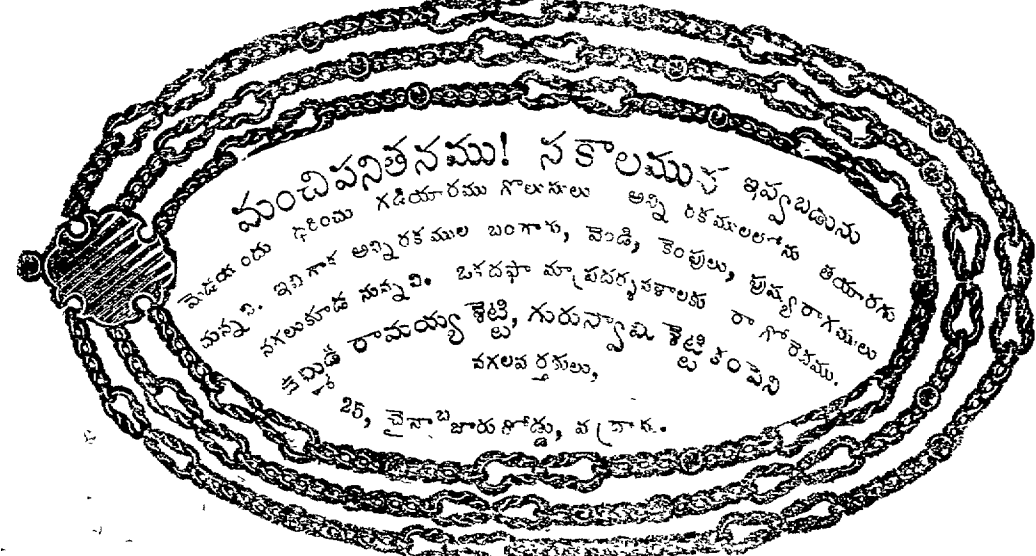 మంచిపనితనము! సకాలమున ఇవ్వబడును
మెడయందు ధరించు గడియారము గొలుసులు అన్ని రకములలోను తయారగు
చున్నవి. ఇవిగాక అన్నిరకముల బంగారు, వెండి, కెంపులు, పుష్యరాగములు
నగలుకూడ నున్నవి. ఒకదఫా మా ప్రదర్శనశాలకు రా గోరెదము.
రామయ్య శెట్టి, గురుస్వామి శెట్టి కంపెని
నగలవర్తకులు,
25, చైనాబజారు రోడ్డు, మద్రాసు.